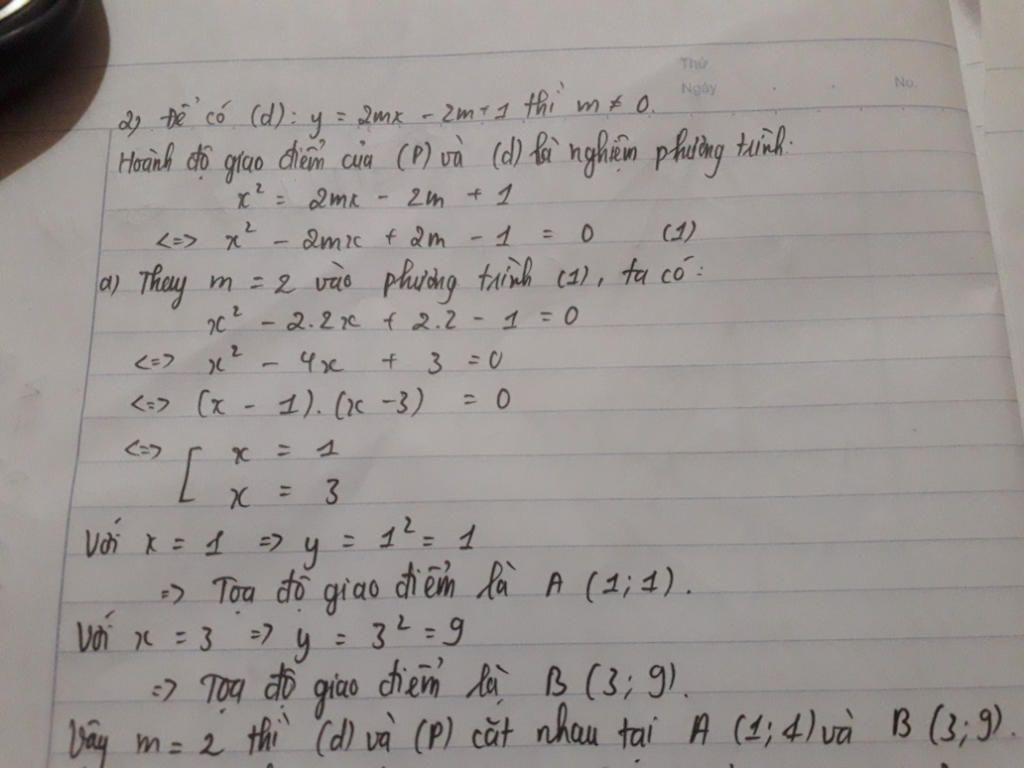 Thứ
Ngày
No.
2, Để có (d): y = 2mx - 2m + 1 thì m ≠ 0.
Hoành độ giao điểm của (P) và (d) là nghiệm phương trình:
x² = 2mx - 2m + 1
<=> x² - 2mx + 2m - 1 = 0 (1)
a) Thay m = 2 vào phương trình (1), ta có:
x² - 2.2x + 2.2 - 1 = 0
<=> x² - 4x + 3 = 0
<=> (x - 1).(x - 3) = 0
<=> [ x = 1
x = 3
Với x = 1 => y = 1² = 1
=> Tọa độ giao điểm là A (1; 1).
Với x = 3 => y = 3² = 9
=> Tọa độ giao điểm là B (3; 9).
Vậy m = 2 thì (d) và (P) cắt nhau tại A (1; 1) và B (3; 9).